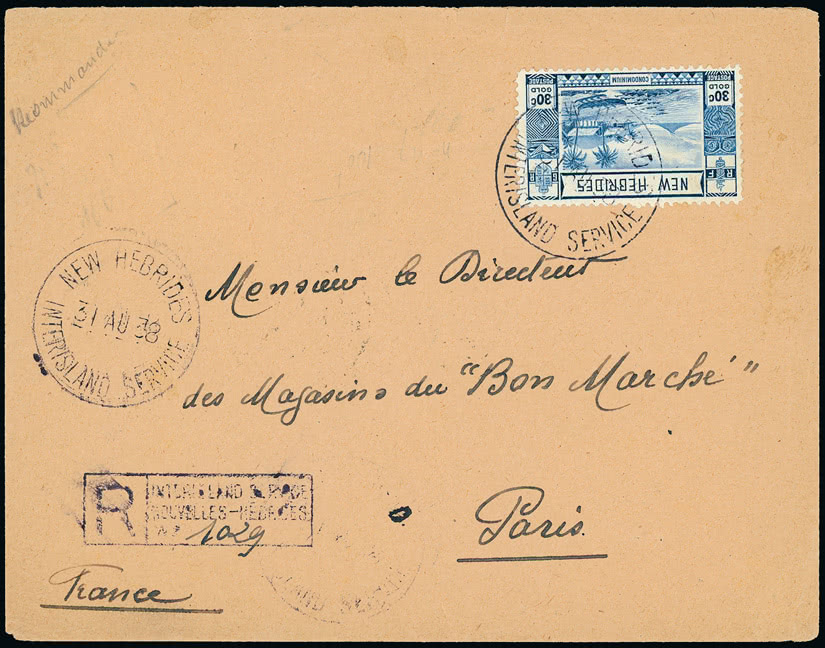 Recommandé
30c
POSTAGE
GOLD
30c
POSTAGE
GOLD
CONDOMINIUM
NEW HEBRIDES
R F
G R
INTERISLAND SERVICE
NEW HEBRIDES
31 AU 38
INTERISLAND SERVICE
Monsieur le Directeur
des Magasins du "Bon Marché"
Paris.
R
INTERISLAND SERVICE
NOUVELLES-HÉBRIDES
No 1029
France